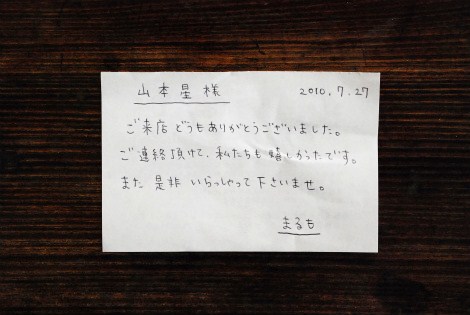 山本星様 2010.7.27
ご来店どうもありがとうございました。
ご連絡頂けて、私たちも嬉しかったです。
また是非いらっしゃって下さいませ。
まるも